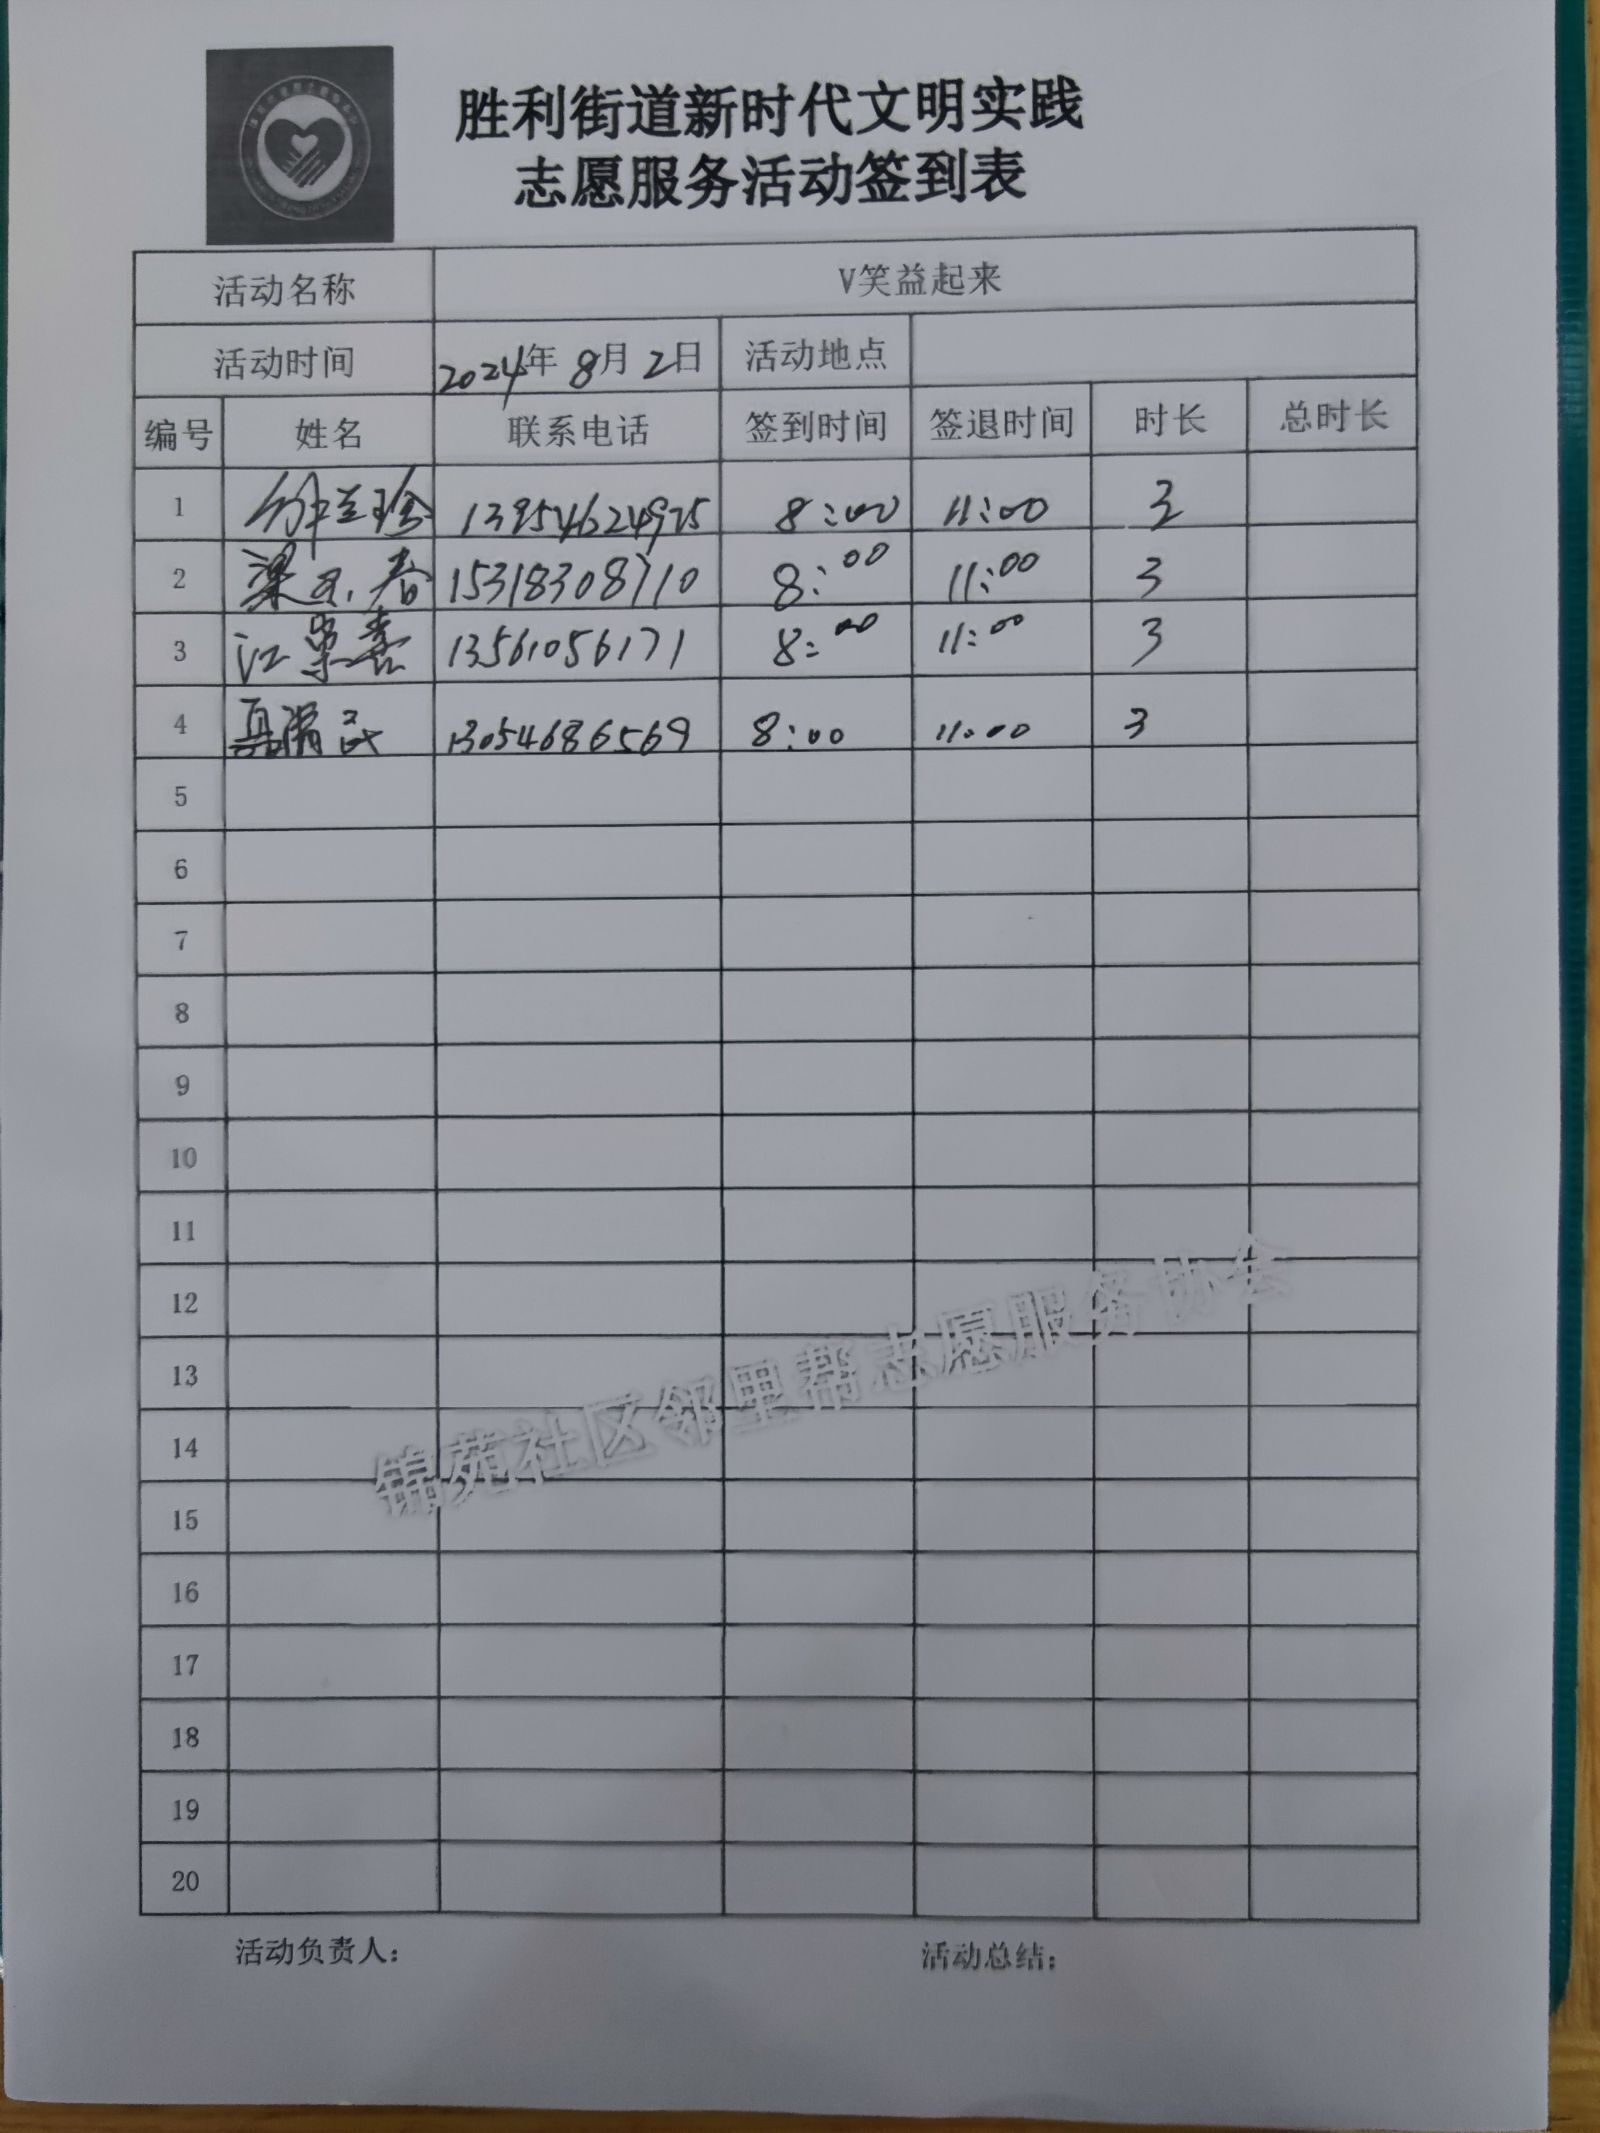 胜利街道新时代文明实践
志愿服务活动签到表
活动名称 V笑益起来
活动时间 2024年 8月 2日 活动地点
编号 姓名 联系电话 签到时间 签退时间 时长 总时长
1 兰珍 13954624975 8:00 11:00 3
2 梁 春 15318308710 8:00 11:00 3
3 江景春 13561056171 8:00 11:00 3
4 聂清民 13054686569 8:00 11:00 3
5
6
7
8
9
10
11
12
13
14
15
16
17
18
19
20
锦苑社区邻里帮志愿服务协会
活动负责人: 活动总结: